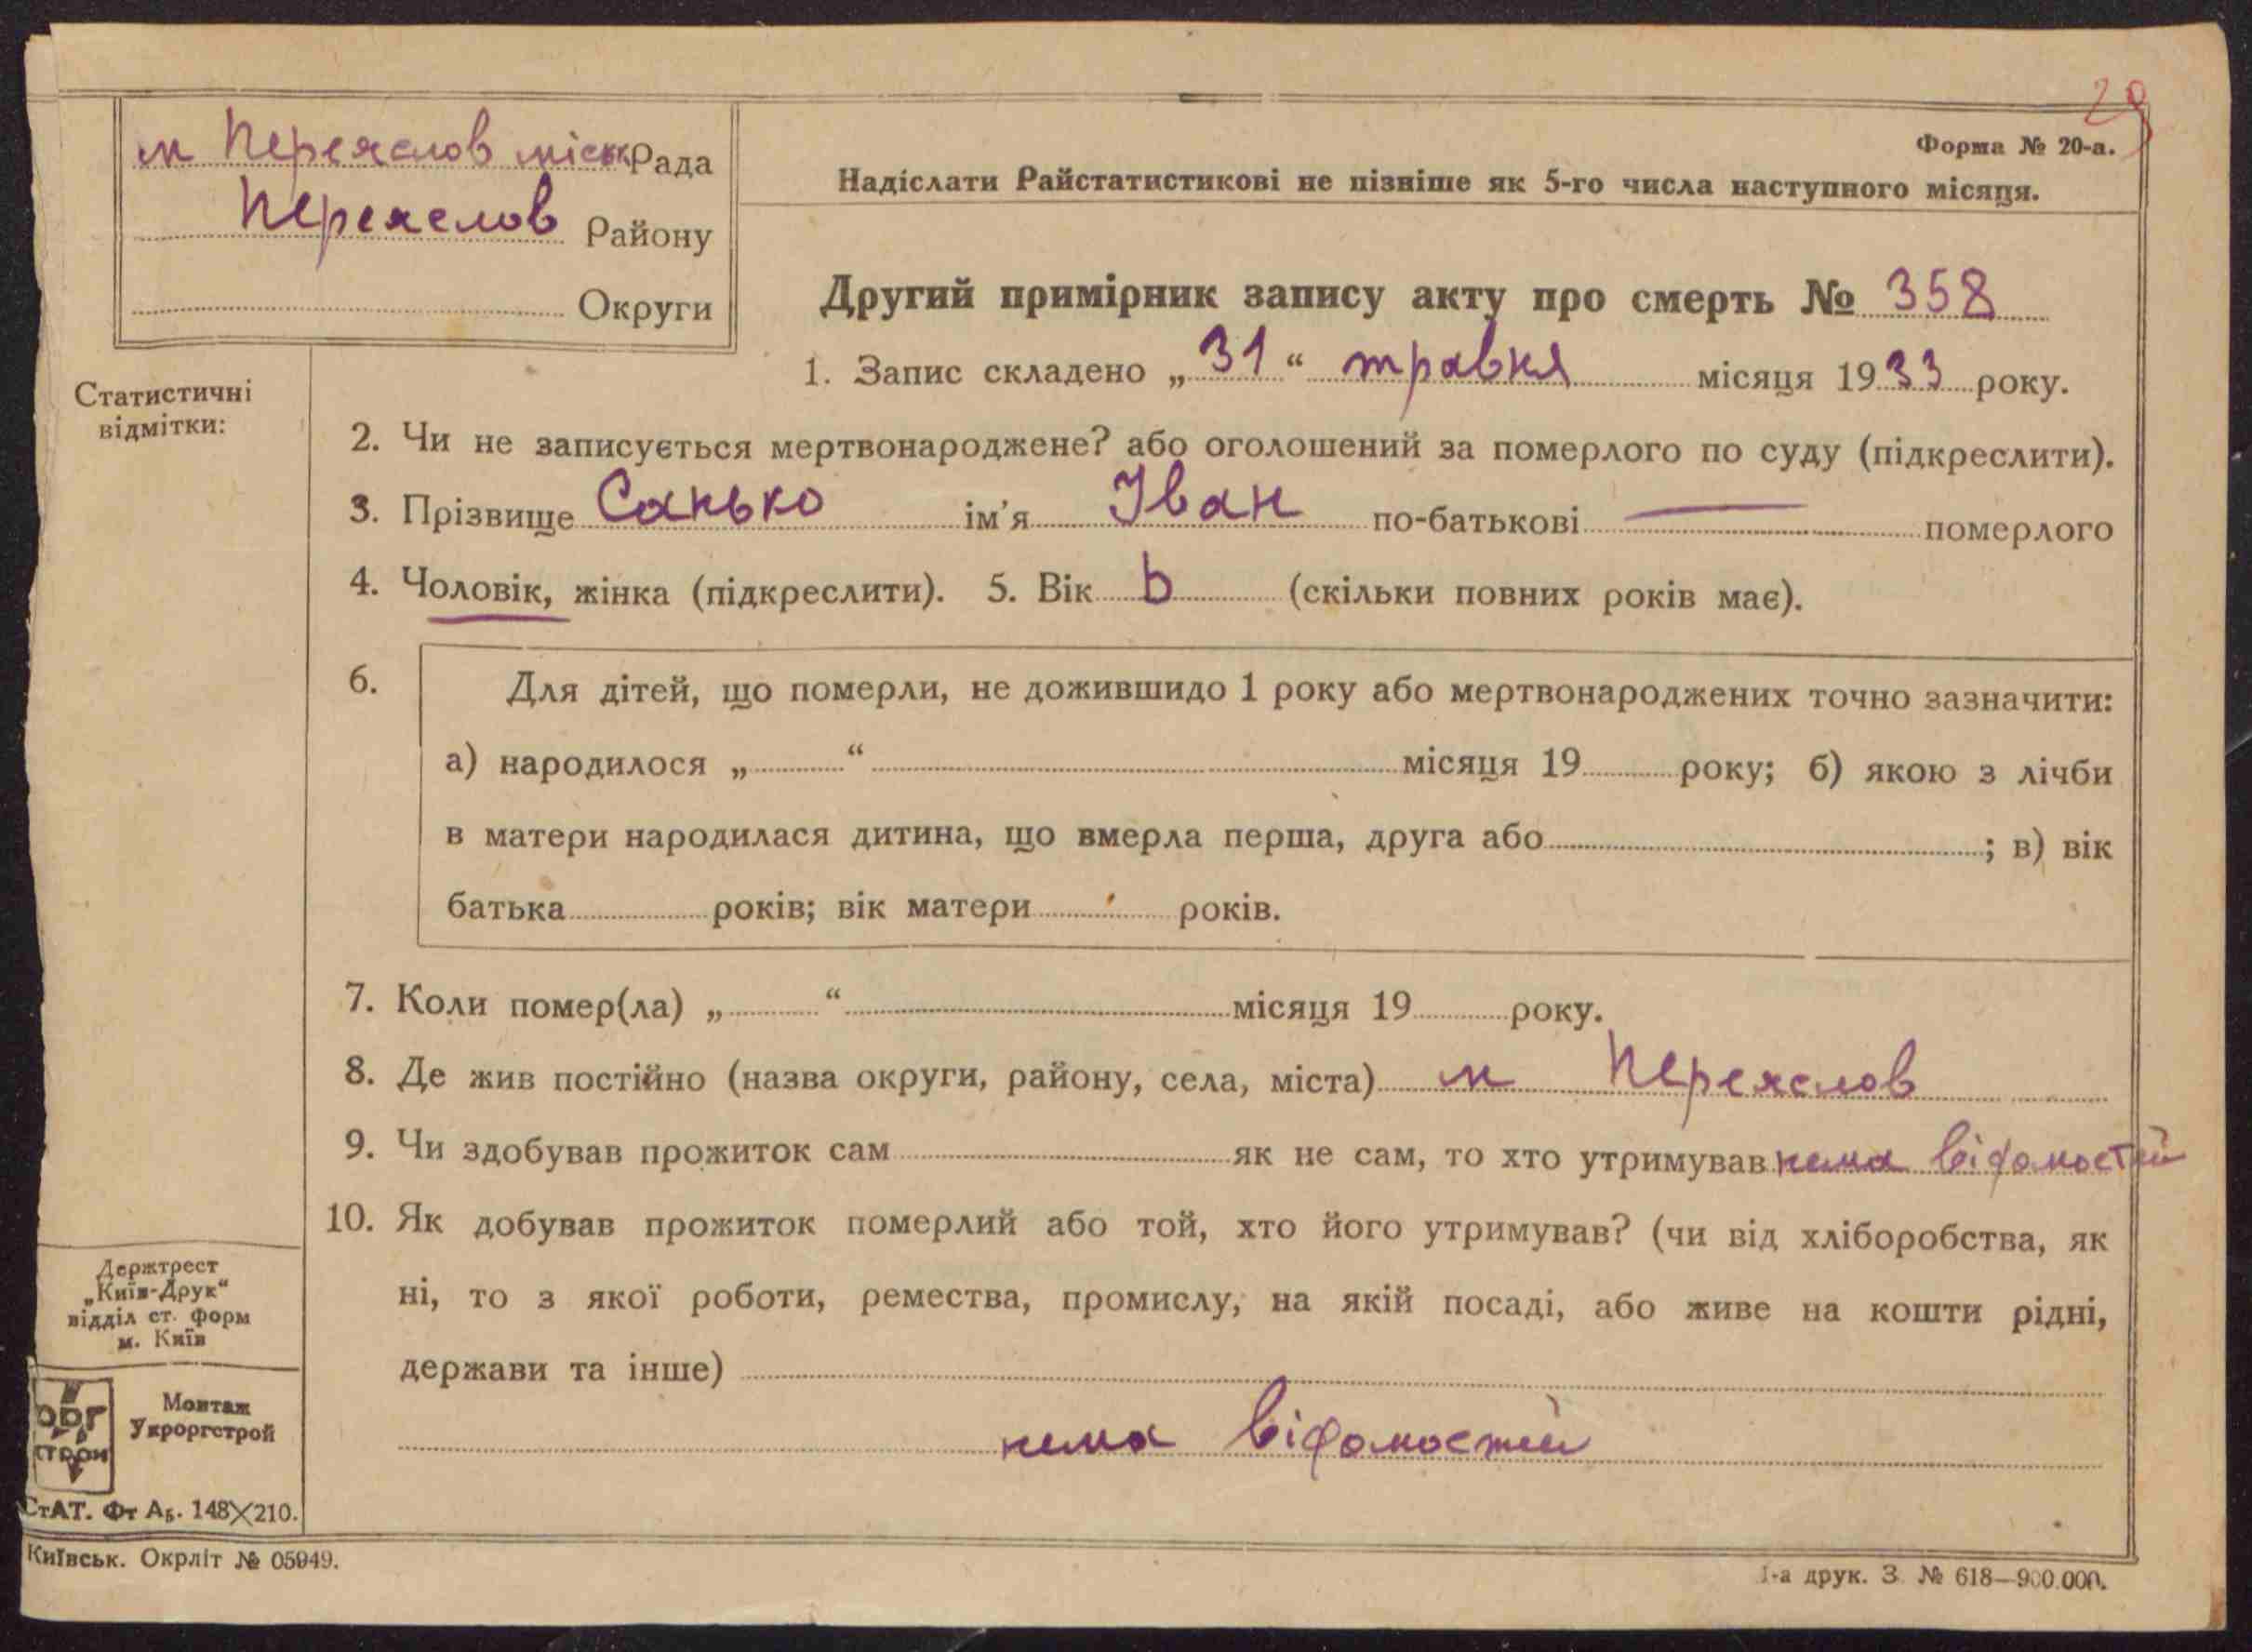 29
м Переяслов міськРада
Переяслов Району
Округи
Форма № 20-а.
Надіслати Райстатистикові не пізніше як 5-го числа наступного місяця.
Другий примірник запису акту про смерть № 358
1. Запис складено „31“ травня місяця 1933 року.
Статистичні
відмітки:
2. Чи не записується мертвонароджене? або оголошений за померлого по суду (підкреслити).
3. Прізвище Санько ім'я Іван по-батькові — померлого
4. Чоловік, жінка (підкреслити). 5. Вік 6 (скільки повних років має).
6. Для дітей, що померли, не дожившидо 1 року або мертвонароджених точно зазначити:
а) народилося „ “ місяця 19 року; б) якою з лічби
в матери народилася дитина, що вмерла перша, друга або ; в) вік
батька років; вік матери років.
7. Коли помер(ла) „ “ місяця 19 року.
8. Де жив постійно (назва округи, району, села, міста) м Переяслов
9. Чи здобував прожиток сам як не сам, то хто утримував нема відомостей
10. Як добував прожиток померлий або той, хто його утримував? (чи від хліборобства, як
ні, то з якої роботи, ремества, промислу, на якій посаді, або живе на кошти рідні,
держави та інше)
нема відомостей
Держтрест
„Київ-Друк“
відділ ст. форм
м. Київ
ОРГ
СТРОЙ
Монтаж
Укроргстрой
СтАТ. Фт А5. 148×210.
Київськ. Окрліт № 05949.
1-а друк. З. № 618—900.000.